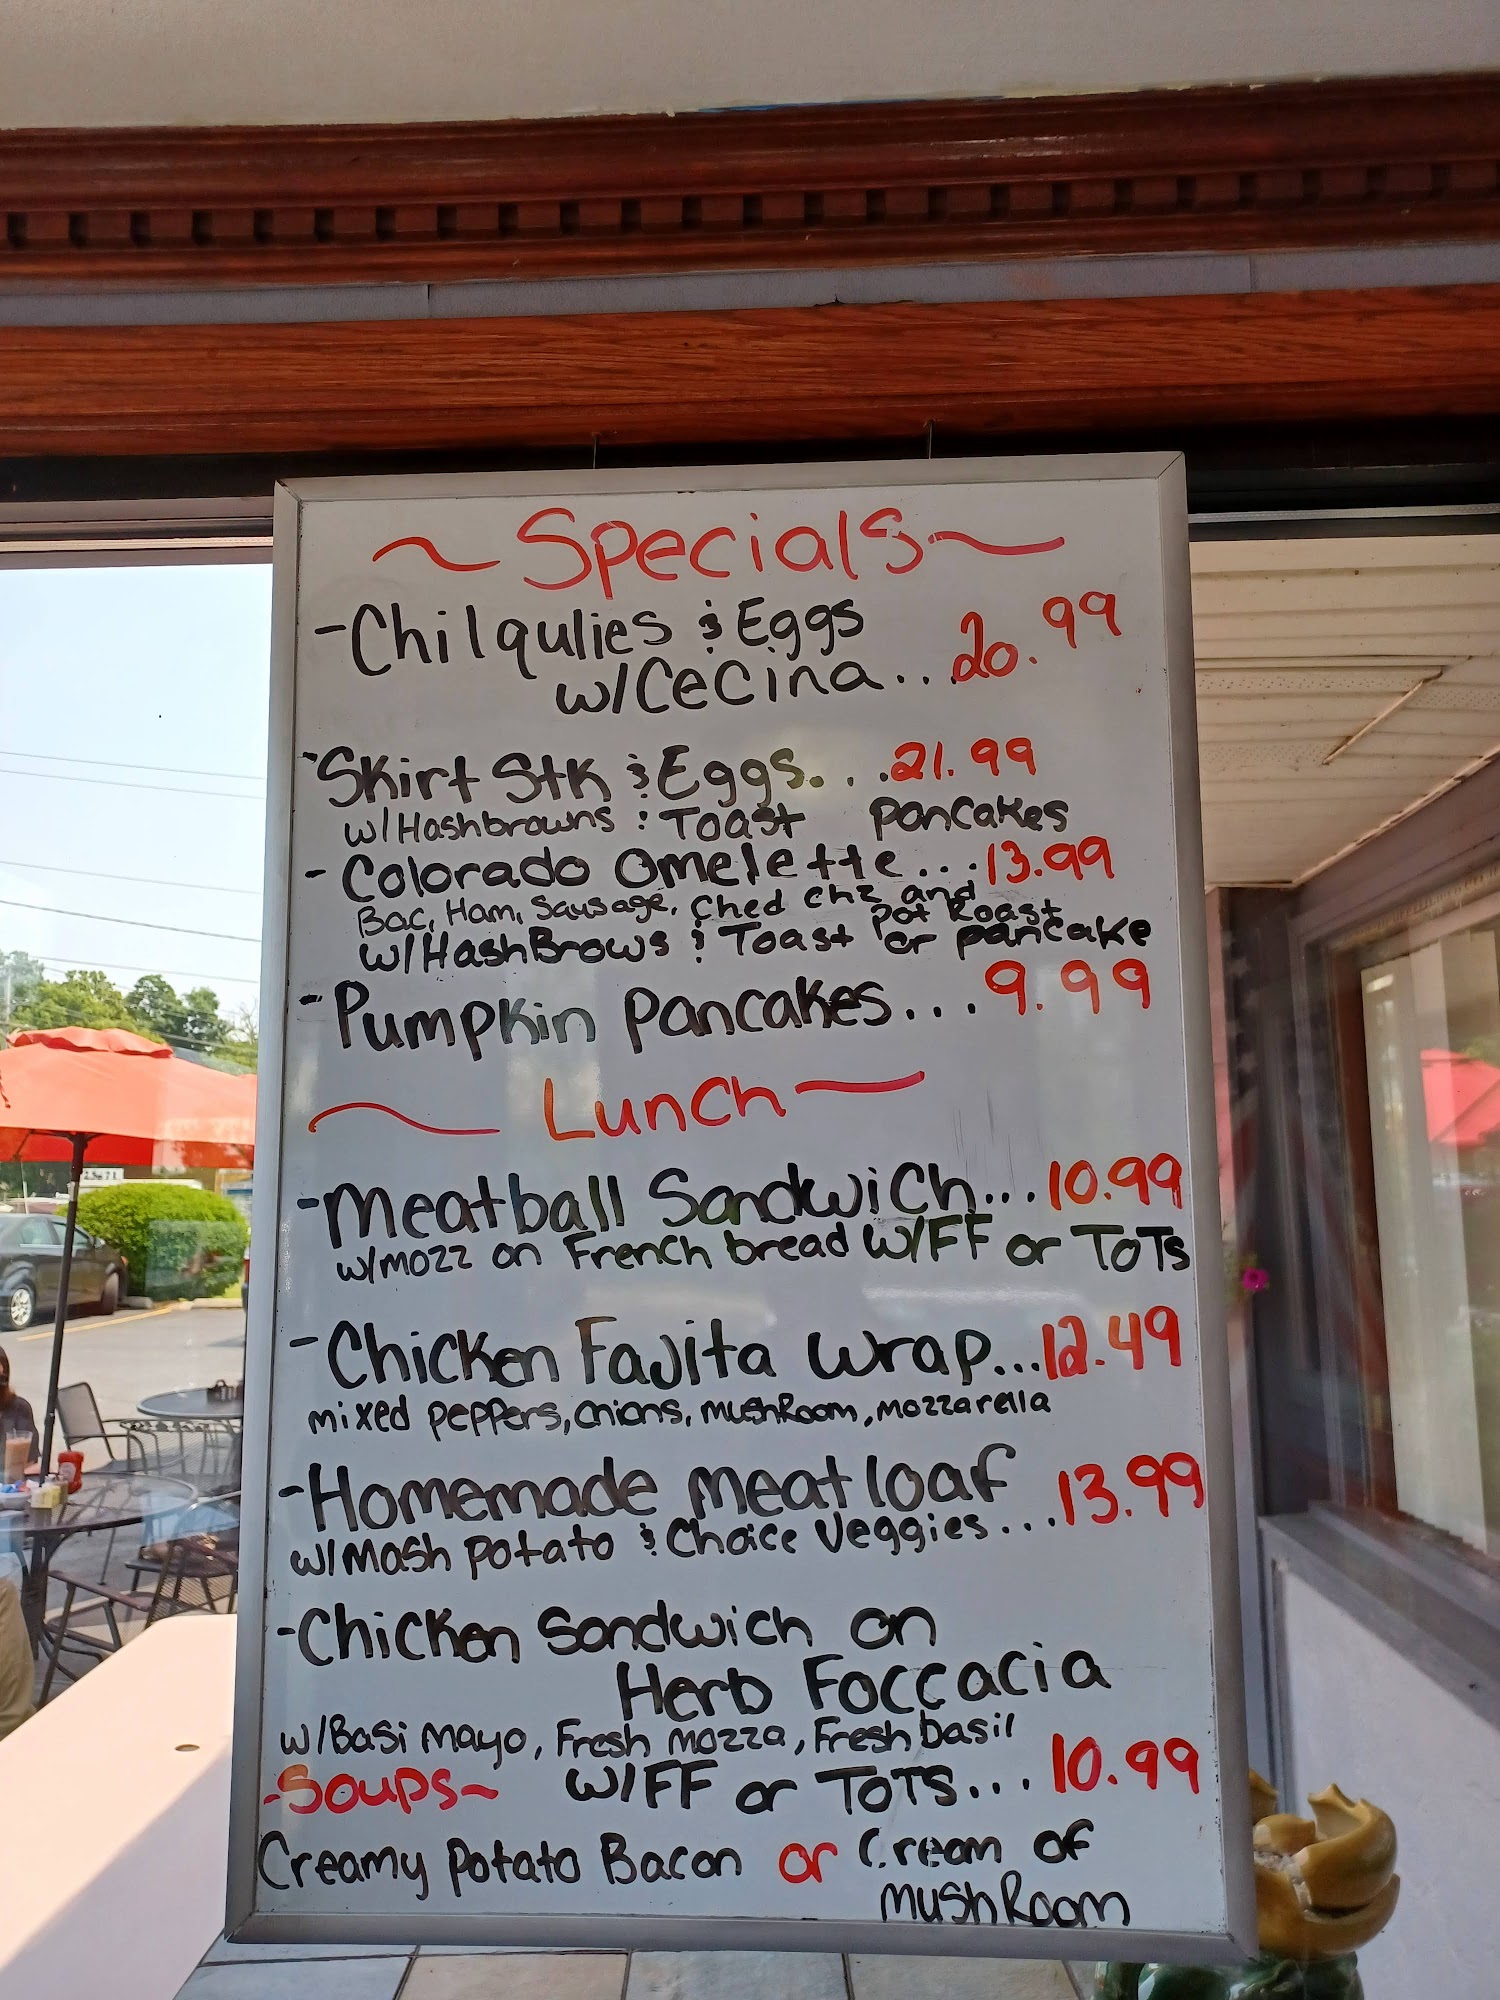 ~Specials~
-Chilqulies & Eggs
w/Cecina...20.99
-Skirt Stk & Eggs...21.99
w/Hashbrowns & Toast pancakes
-Colorado Omelette...13.99
Bac, Ham, Sausage, Ched chz and
pot Roast
w/HashBrows & Toast or pancake
-Pumpkin pancakes...9.99
~Lunch~
-Meatball Sandwich...10.99
w/mozz on French bread w/FF or ToTs
-Chicken Fajita wrap...12.49
mixed peppers, onions, mushRoom, mozzarella
-Homemade meatloaf
w/Mash potato & Choice Veggies...13.99
-Chicken Sandwich on
Herb Foccacia
w/Basi mayo, Fresh mozza, Fresh basil
-Soups~ w/FF or ToTS...10.99
Creamy potato Bacon or Cream of
mushRoom